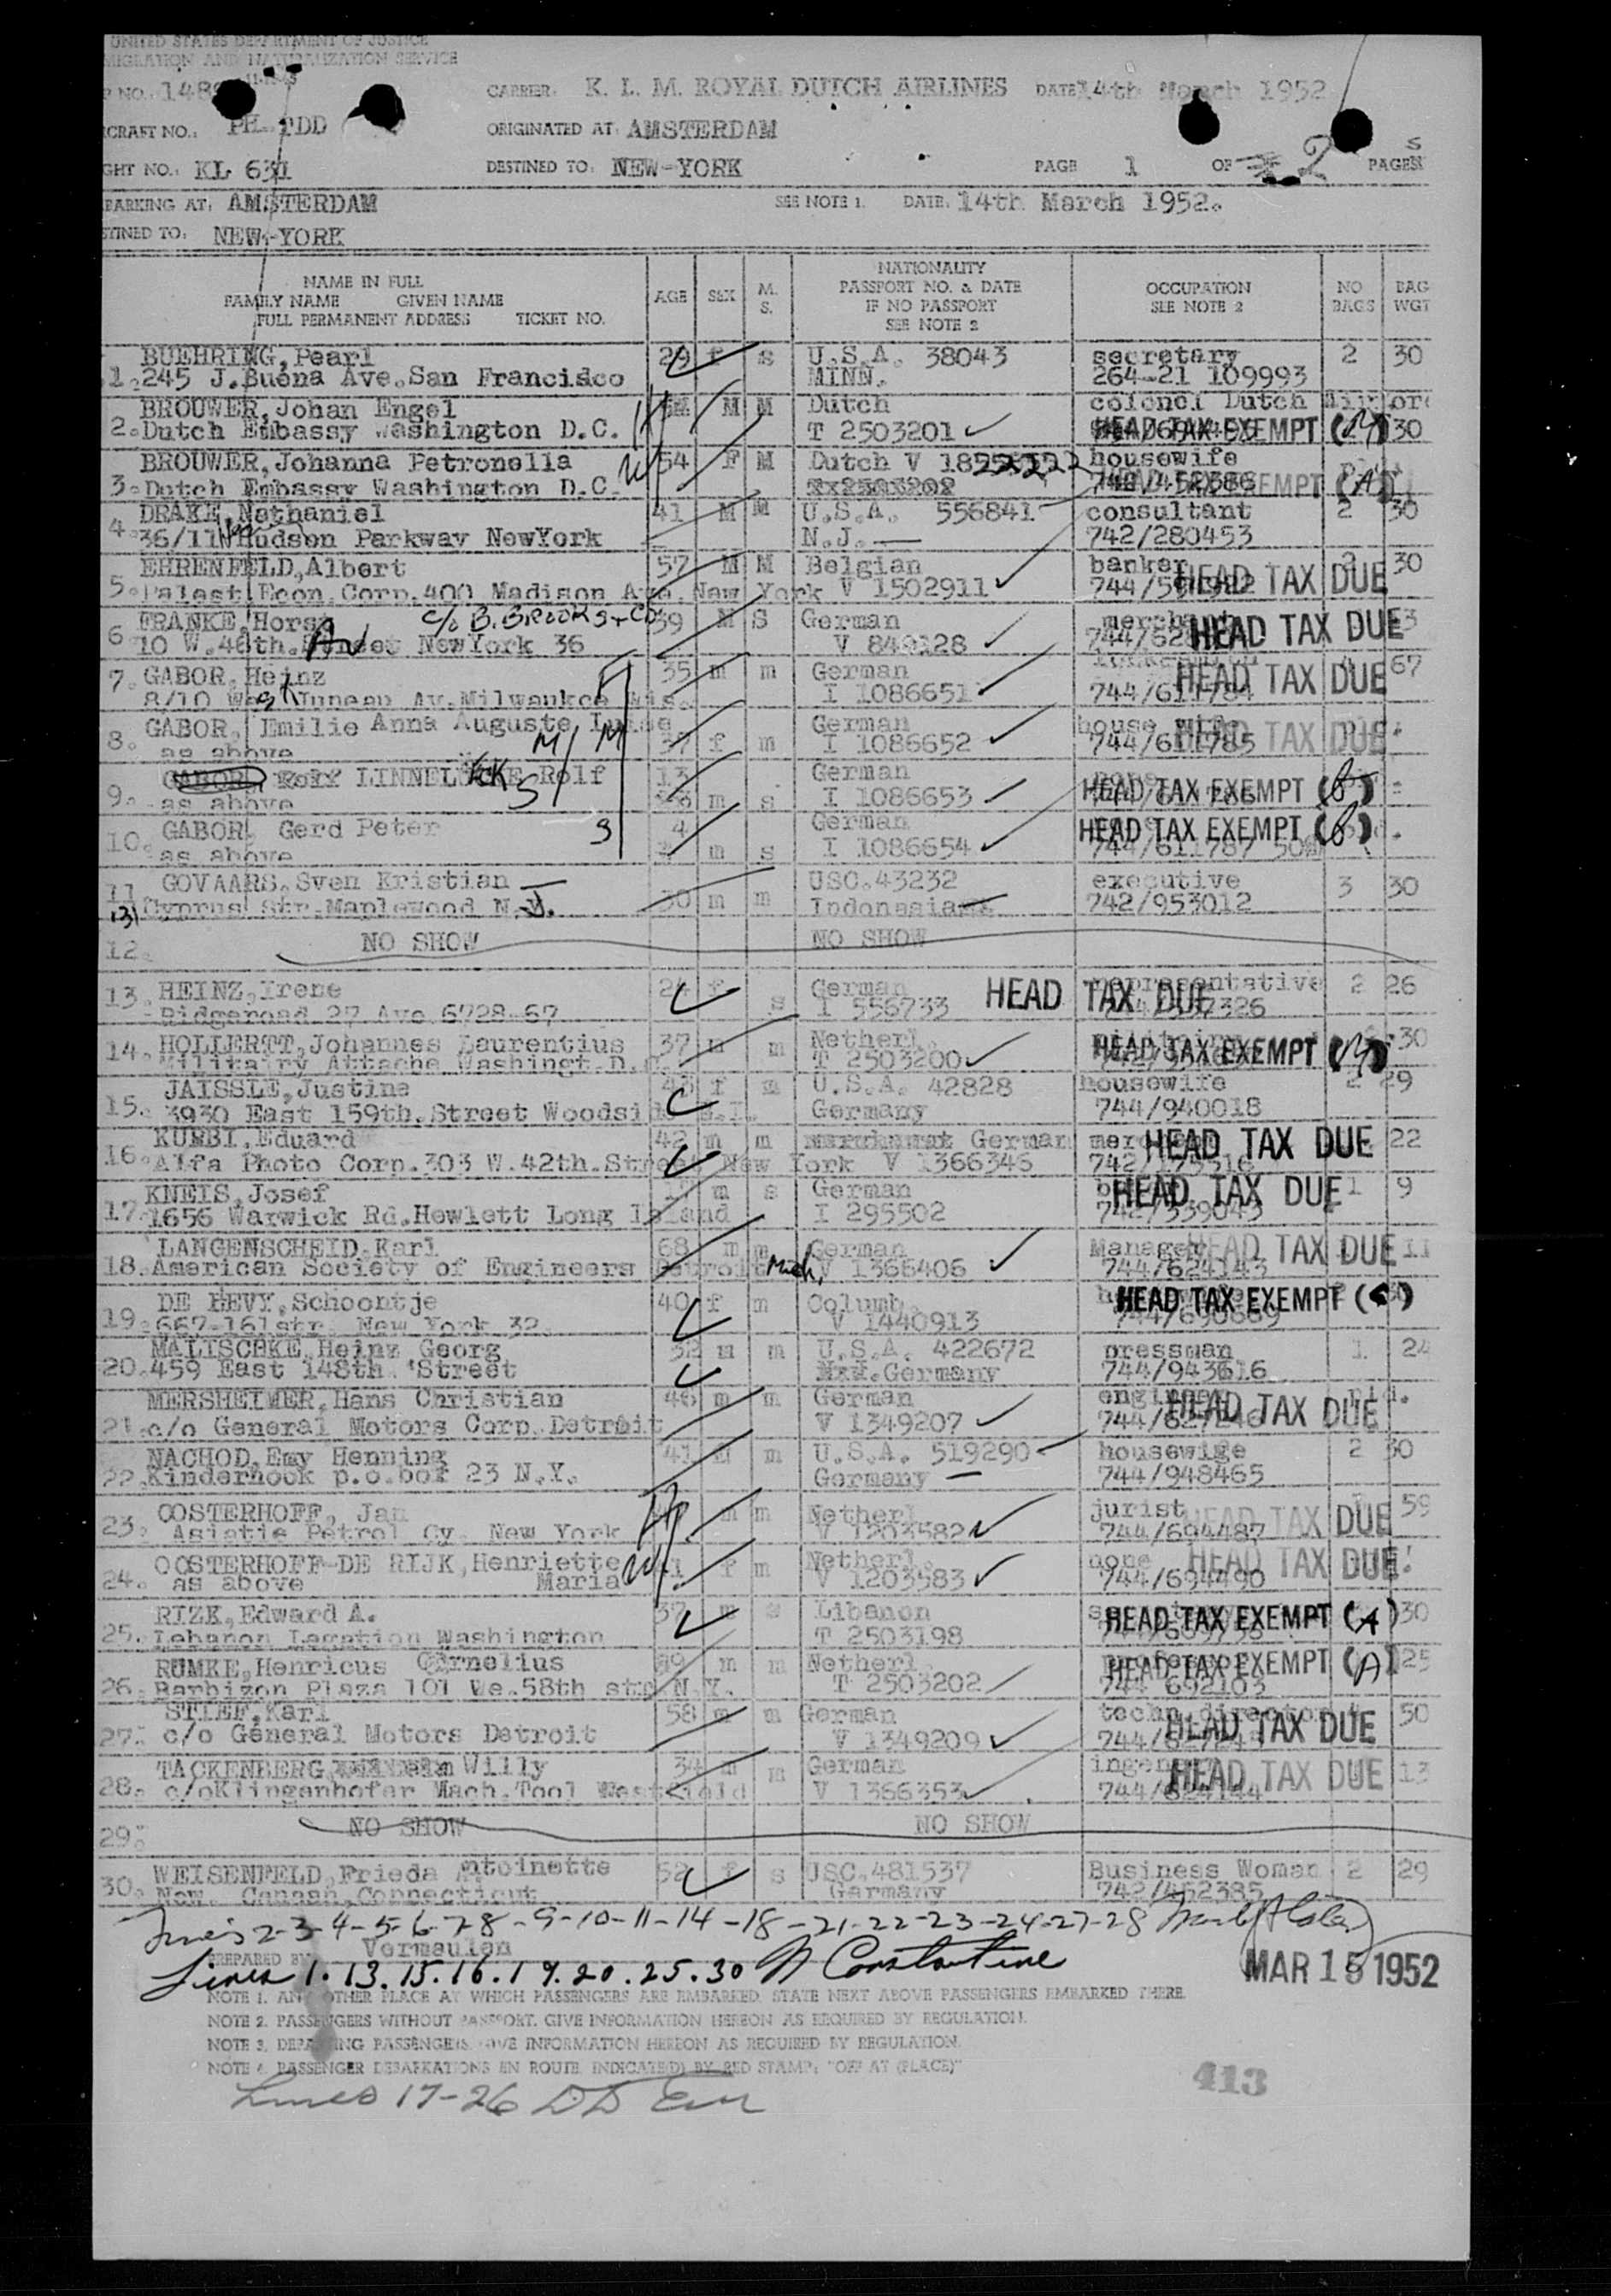 UNITED STATES DEPARTMENT OF JUSTICE
MIGRATION AND NATURALIZATION SERVICE
CARRIER: K. L. M. ROYAL DUTCH AIRLINES DATE 14th March 1952
CRAFT NO.: PH-TDD ORIGINATED AT: AMSTERDAM
GHT NO.: KL 631 DESTINED TO: NEW-YORK PAGE 1 OF 2 PAGES
BARKING AT: AMSTERDAM SEE NOTE 1. DATE: 14th March 1952.
STINED TO: NEW-YORK
NAME IN FULL
FAMILY NAME GIVEN NAME
FULL PERMANENT ADDRESS TICKET NO.
AGE SEX M. S.
NATIONALITY
PASSPORT NO. & DATE
IF NO PASSPORT
SEE NOTE 2
OCCUPATION
SEE NOTE 2
NO BAGS
BAG WGT
BUEHRING, Pearl 29 f s U.S.A. 38043 secretary 2 30
1. 245 J.Buena Ave.San Francisco MINN. 264-21 109993
BROUWER, Johan Engel M M Dutch colonel Dutch
2. Dutch Embassy Washington D.C. T 2503201 HEAD TAX EXEMPT 30
BROUWER, Johanna Petronella 54 F M Dutch V housewife
3. Dutch Embassy Washington D.C. HEAD TAX EXEMPT (A)
DRAKE, Nathaniel 41 M M U.S.A. 556841 consultant 2 30
4. 36/11 Hudson Parkway NewYork N.J. 742/280453
EHRENFELD, Albert 57 M M Belgian banker 30
5. Palest.Econ.Corp.400 Madison Ave.New York V 1502911 HEAD TAX DUE
FRANKE, Horst c/o B. BROOKS + CO 39 M S German
6. 10 W.46th.Street NewYork 36 V 849128 HEAD TAX DUE
7. GABOR, Heinz 35 m m German HEAD TAX DUE 67
8/10 West Juneau Av.Milwaukee Wis. I 1086651
8. GABOR, Emilie Anna Auguste Luise German house wife HEAD TAX DUE
as above 37 f m I 1086652 744/611785
GABOR, Rolf LINNELÜCKE Rolf 13 German
9. as above m s I 1086653 HEAD TAX EXEMPT (B)
10. GABOR, Gerd Peter 4 German HEAD TAX EXEMPT (B)
as above m s I 1086654 744/611787
GOVAARS, Sven Kristian USC.43232 executive 3 30
11. 131 Cyprus Str.Maplewood N.J. 30 m m Indonesia 742/953012
12. NO SHOW NO SHOW
13. HEINZ, Irene 24 f s German representative 2 26
Ridgeroad 27 Ave 6728-67 I 556733 HEAD TAX DUE
14. HOLLERTT, Johannes Laurentius 37 m m Netherl. 30
Military Attache Washingt.D.C. T 2503200 HEAD TAX EXEMPT
JAISSLE, Justine f m U.S.A. 42828 housewife 2 29
15. 3930 East 159th.Street Woodside L.I. Germany 744/940018
KUMBI, Eduard 42 m m German HEAD TAX DUE 22
16. Alfa Photo Corp.303 W.42th.Street New York V 1366346
KNEIS, Josef m s German HEAD TAX DUE 1 9
17. 1656 Warwick Rd.Hewlett Long Island I 295502
LANGENSCHEID, Karl 68 m m German Manager HEAD TAX DUE 11
18. American Society of Engineers Detroit Mich. V 1366406 744/624143
DE HEVY, Schoontje 40 f m Columb. HEAD TAX EXEMPT
19. 667-161str. New York 32. V 1440913
MALISCHKE, Heinz Georg 32 m m U.S.A. 422672 pressman 1 24
20. 459 East 148th. Street Germany 744/943616
MERSHEIMER, Hans Christian 46 m m German engineer
21. c/o General Motors Corp.Detroit V 1349207 HEAD TAX DUE
NACHOD, Emy Henning 41 m U.S.A. 519290 housewife 2 30
22. Kinderhook p.o.box 23 N.Y. Germany 744/948465
OOSTERHOFF, Jan m m Netherl. jurist 59
23. Asiatic Petrol Cy. New York V 1203582 744/694487 HEAD TAX DUE
OOSTERHOFF-DE RIJK, Henriette 41 f m Netherl. none HEAD TAX DUE
24. as above Maria V 1203583 744/694490
RIZK, Edward A. 37 m Libanon 30
25. Lebanon Legation Washington T 2503198 HEAD TAX EXEMPT (A)
RUMKE, Henricus Cornelius 59 m m Netherl. 25
26. Barbizon Plaza 101 We.58th str. N.Y. T 2503202 HEAD TAX EXEMPT (A) 744 692103
STIEF, Karl 58 m m German techn.director 50
27. c/o General Motors Detroit V 1349209 HEAD TAX DUE
TACKENBERG, Willy 34 m m German HEAD TAX DUE 13
28. c/oKlingenhofer Mach.Tool Westfield V 1366353 744/624144
29. NO SHOW NO SHOW
WEISENFELD, Frieda Antoinette 52 f s USC.481537 Business Woman 2 29
30. New. Canaan, Connecticut Germany 742/452385
Lines 2-3-4-5-6-7-8-9-10-11-14-18-21-22-23-24-27-28
PREPARED BY Vermeulen
Lines 1. 13. 15. 16. 19. 20. 25. 30 N Constantine MAR 15 1952
NOTE 1. ANY OTHER PLACE AT WHICH PASSENGERS ARE EMBARKED, STATE NEXT ABOVE PASSENGERS EMBARKED THERE.
NOTE 2. PASSENGERS WITHOUT PASSPORT, GIVE INFORMATION HEREON AS REQUIRED BY REGULATION.
NOTE 3. DEPARTING PASSENGERS, GIVE INFORMATION HEREON AS REQUIRED BY REGULATION.
NOTE 4. PASSENGER DEBARKATIONS EN ROUTE INDICATE(D) BY RED STAMP: "OFF AT (PLACE)"
Lines 17-26
413